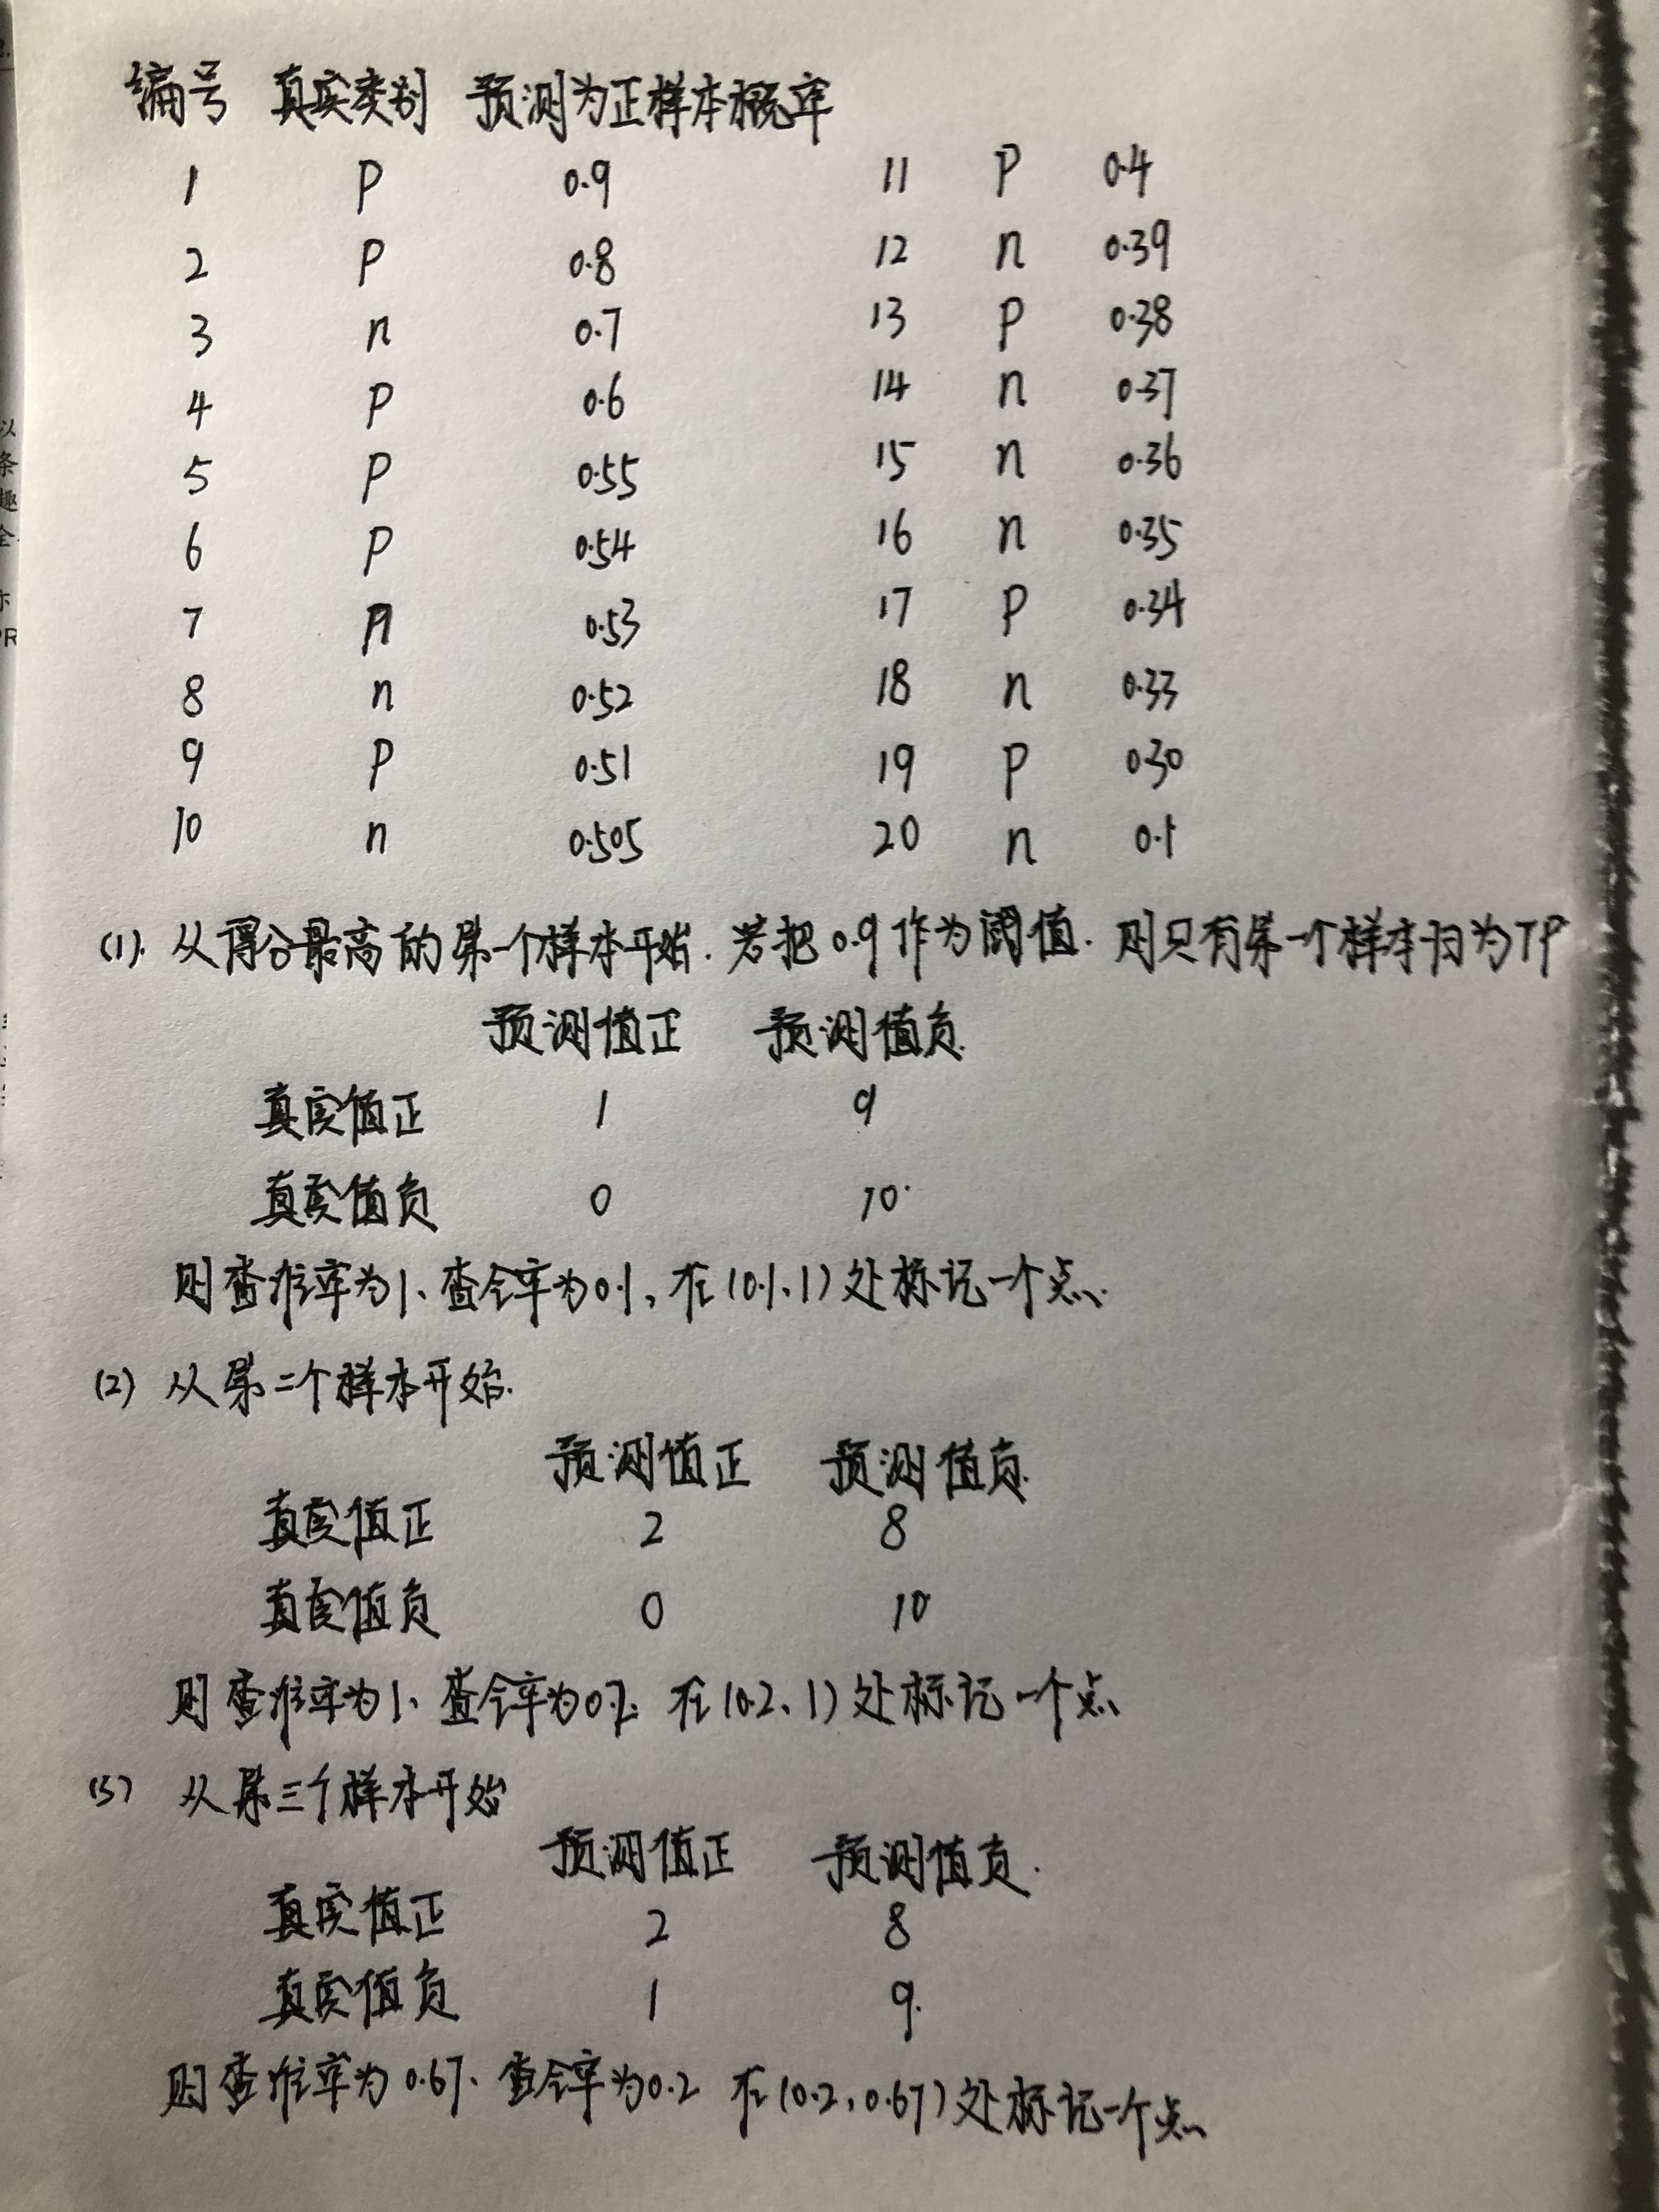 编号 真实类别 预测为正样本概率
1 P 0.9 11 P 0.4
2 P 0.8 12 n 0.39
3 n 0.7 13 P 0.38
4 P 0.6 14 n 0.37
5 P 0.55 15 n 0.36
6 P 0.54 16 n 0.35
7 n 0.53 17 P 0.34
8 n 0.52 18 n 0.33
9 P 0.51 19 P 0.30
10 n 0.505 20 n 0.1
(1). 从得分最高的第一个样本开始. 若把0.9作为阈值. 则只有第一个样本归为TP
预测值正 预测值负.
真实值正 1 9
真实值负 0 10
则查准率为1、查全率为0.1, 在(0.1、1)处标记一个点、
(2) 从第二个样本开始.
预测值正 预测值负.
真实值正 2 8
真实值负 0 10
则查准率为1、查全率为0.2. 在(0.2、1)处标记一个点、
(3) 从第三个样本开始
预测值正 预测值负.
真实值正 2 8
真实值负 1 9.
则查准率为0.67、查全率为0.2 在(0.2,0.67)处标记一个点、